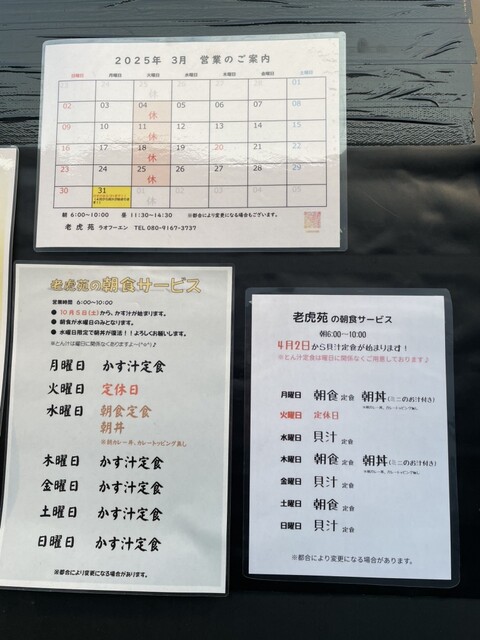 2025年 3月 営業のご案内
日曜日 月曜日 火曜日 水曜日 木曜日 金曜日 土曜日
23 24 25 26 27 28 01
休
02 03 04 05 06 07 08
休
09 10 11 12 13 14 15
休
16 17 18 19 20 21 22
休
23 24 25 26 27 28 29
休
30 31 01 02 03 04 05
休
朝 6:00~10:00 昼 11:30~14:30 ※都合により変更になる場合もございます。
老虎苑 ラオフーエン TEL 080-9167-3737
老虎苑の朝食サービス
営業時間 6:00~10:00
● 10月5日(土)から、かす汁が始まります。
● 朝食が水曜日のみとなります。
● 水曜日限定で朝丼が復活!!よろしくお願いします。
※とん汁定食は曜日に関係なくありますよ~(^o^)♪
月曜日 かす汁定食
火曜日 定休日
水曜日 朝食定食
朝丼
※朝カレー丼、カレートッピング無し
木曜日 かす汁定食
金曜日 かす汁定食
土曜日 かす汁定食
日曜日 かす汁定食
※都合により変更になる場合があります。
老虎苑の朝食サービス
朝6:00~10:00
4月2日から貝汁定食が始まります!
※とん汁定食は曜日に関係なくご用意しております♪
月曜日 朝食定食 朝丼(ミニのお汁付き)
※朝カレー丼、カレートッピング無し
火曜日 定休日
水曜日 貝汁定食
木曜日 朝食定食 朝丼(ミニのお汁付き)
※朝カレー丼、カレートッピング無し
金曜日 貝汁定食
土曜日 朝食定食
日曜日 貝汁定食
※都合により変更になる場合があります。